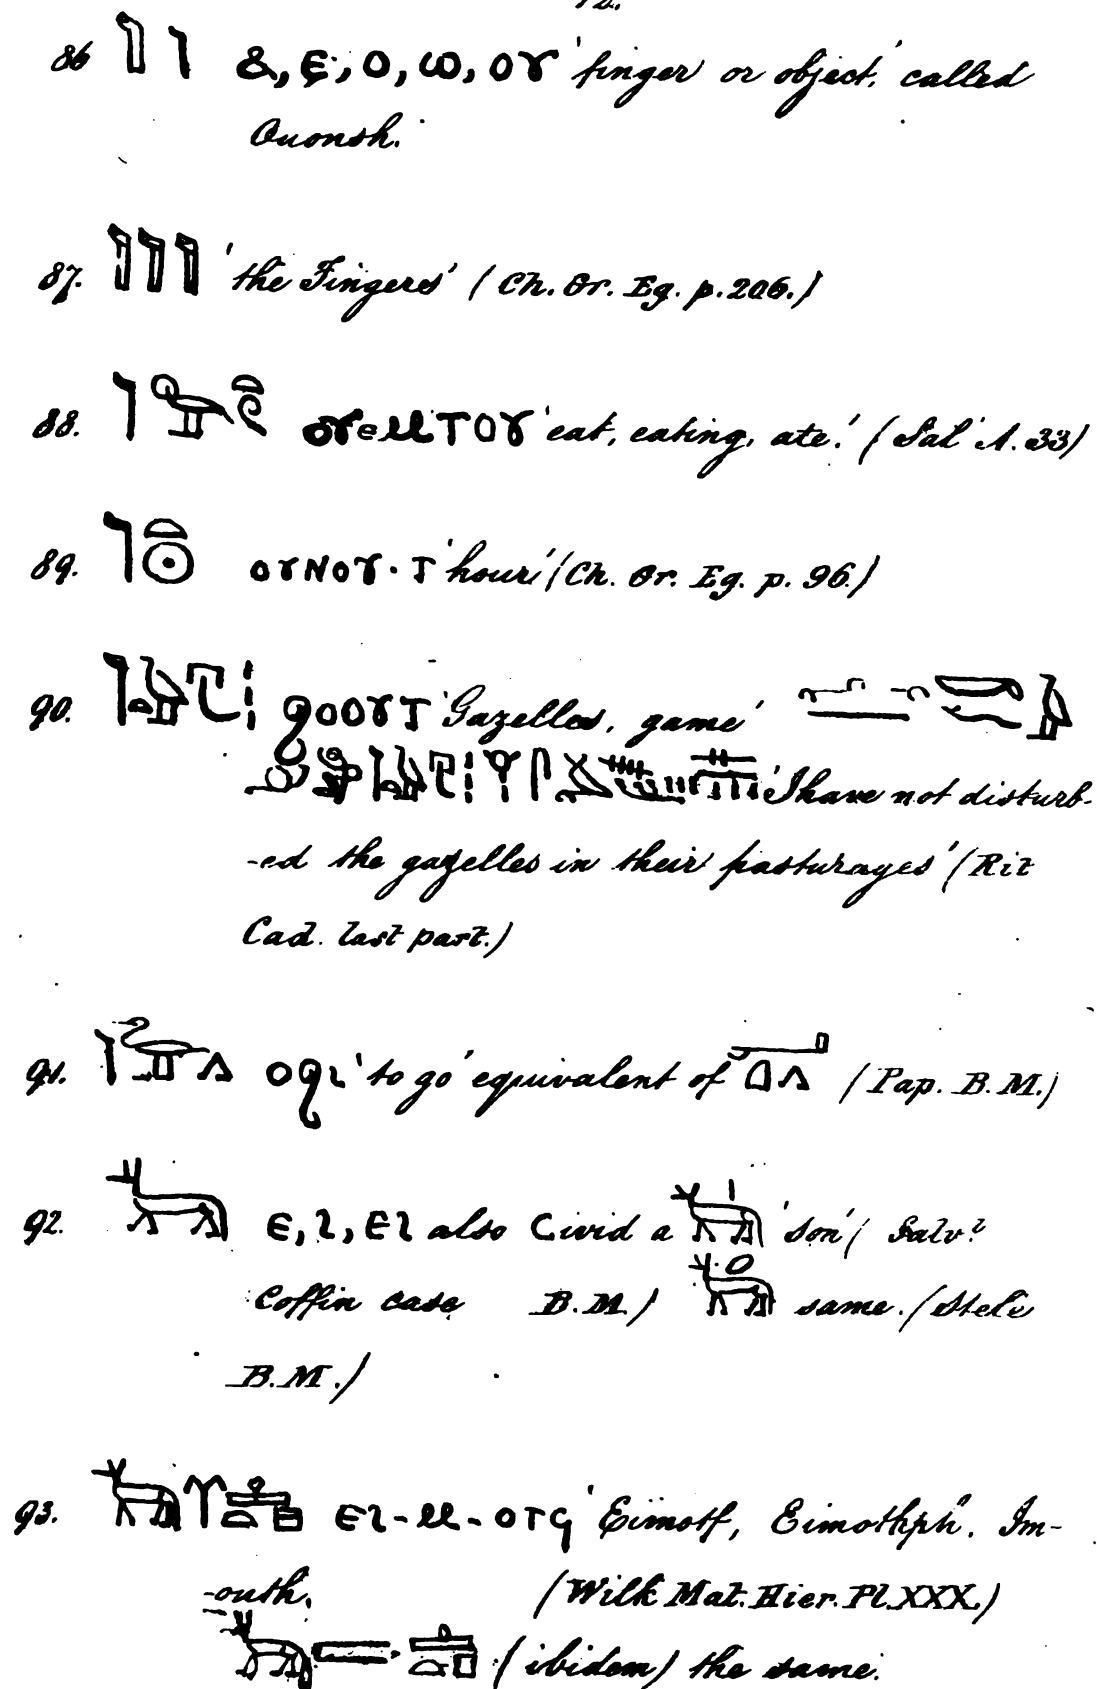 86 ⲁ, ⲉ, ⲟ, ⲱ, ⲟⲩ 'finger or object,' called
Ouonsh.
87. 'the Fingers' (Ch. Gr. Eg. p. 206.)
88. ⲟⲩⲉⲙⲧⲟⲩ 'eat, eating, ate.' (Sal. A. 33)
89. ⲟⲩⲛⲟⲩ·ⲧ 'hour' (Ch. Gr. Eg. p. 96.)
90. ϩⲟⲟⲩⲧ 'Gazelles, game'
'I have not disturb-
-ed the gazelles in their pasturages' (Rit
Cad. last part.)
91. ⲟϩⲓ 'to go' equivalent of (Pap. B.M.)
92. ⲉ, ⲓ, ⲉⲓ also Civid a 'son' ( Salv.
Coffin case B.M.) same. (Stele
B.M.)
93. ⲉⲓ-ⲙ-ⲟⲧϥ 'Eimotf, Eimothph. Im-
-outh. (Wilk Mat. Hier. Pl. XXX.)
(ibidem) the same.